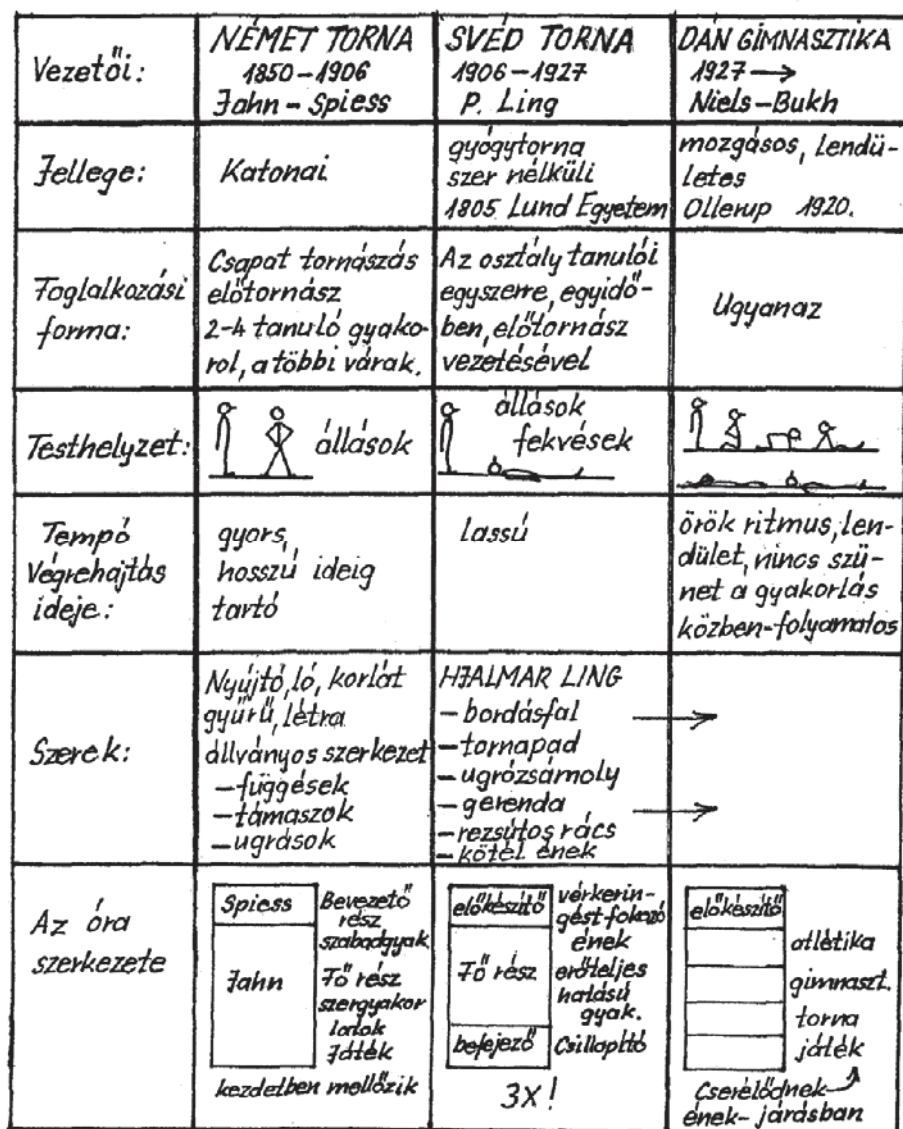 Vezetői:
NÉMET TORNA
1850-1906
Jahn-Spiess
SVÉD TORNA
1906-1927
P. Ling
DÁN GIMNASZTIKA
1927→
Niels-Bukh
Jellege:
Katonai
gyógytorna
szer nélküli
1805 Lund Egyetem
mozgásos, lendü-
letes
Ollerup 1920.
Foglalkozási
forma:
Csapat tornászás
előtornász
2-4 tanuló gyako-
rol, a többi várak.
Az osztály tanulói
egyszerre, egyidő-
ben, előtornász
vezetésével
Ugyanaz
Testhelyzet:
állások
állások
fekvések
Tempó
Végrehajtás
ideje:
gyors,
hosszú ideig
tartó
lassú
örök ritmus, len-
dület, nincs szü-
net a gyakorlás
közben-folyamatos
Szerek:
Nyújtó, ló, korlát
gyűrű, létra
állványos szerkezet
-függések
-támaszok
-ugrások
HJALMAR LING
-bordásfal
-tornapad
-ugrózsámoly
-gerenda
-rezsútos rács
-kötél ének
Az óra
szerkezete
Spiess
Jahn
Bevezető
rész
szabadgyak
Fő rész
szergyakor
latok
Játék
kezdetben mellőzik
előkészítő
Fő rész
befejező
vérkerin-
gést-fokozó
ének
erőteljes
hatású
gyak.
Csillapító
3X!
előkészítő
atlétika
gimnaszt.
torna
játék
Cserélődnek
ének-járásban